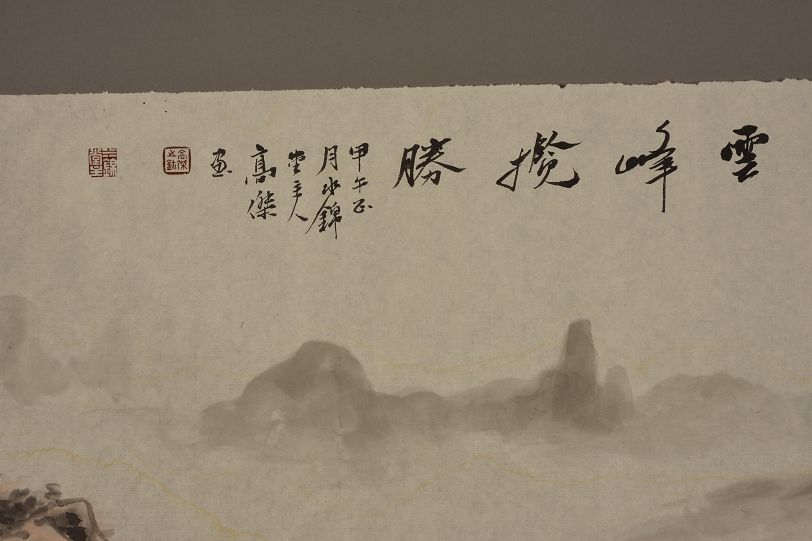 雲峰攬勝
甲午正
月水錦
堂主人
高傑
画